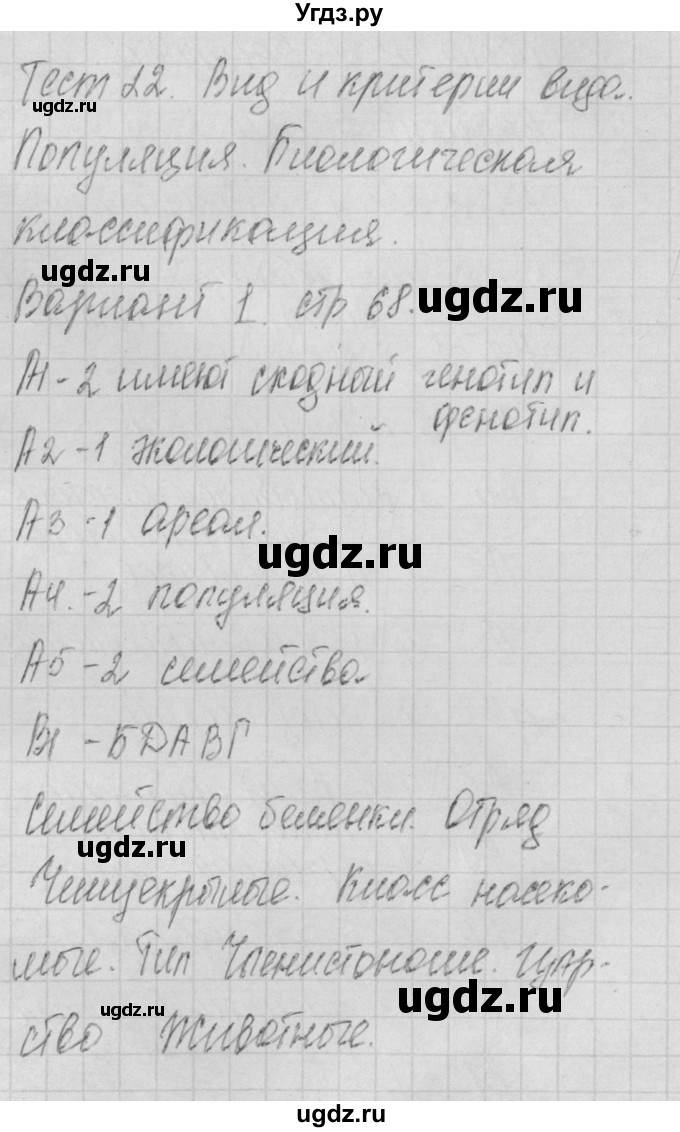 Угдз.ру
Тест 22. Вид и критерии вида.
ugdz.ru
Популяция. Биологическая
классификация.
ugdz.ru
Вариант 1. стр 68.
ugdz.ru
А1-2 имеют сходный генотип и
фенотип.
А2-1 экологический.
А3-1 ареал.
ugdz.ru
А4.-2 популяция.
А5-2 семейства
В1 -БДАВГ
Семейство белянки. Отряд
ugdz.ru
Чешуекрылые. Класс насеко-
мые. Тип Членистоногие. Цар-
ugdz.ru
ugdz.ru
ство Животные.
ugdz.ru